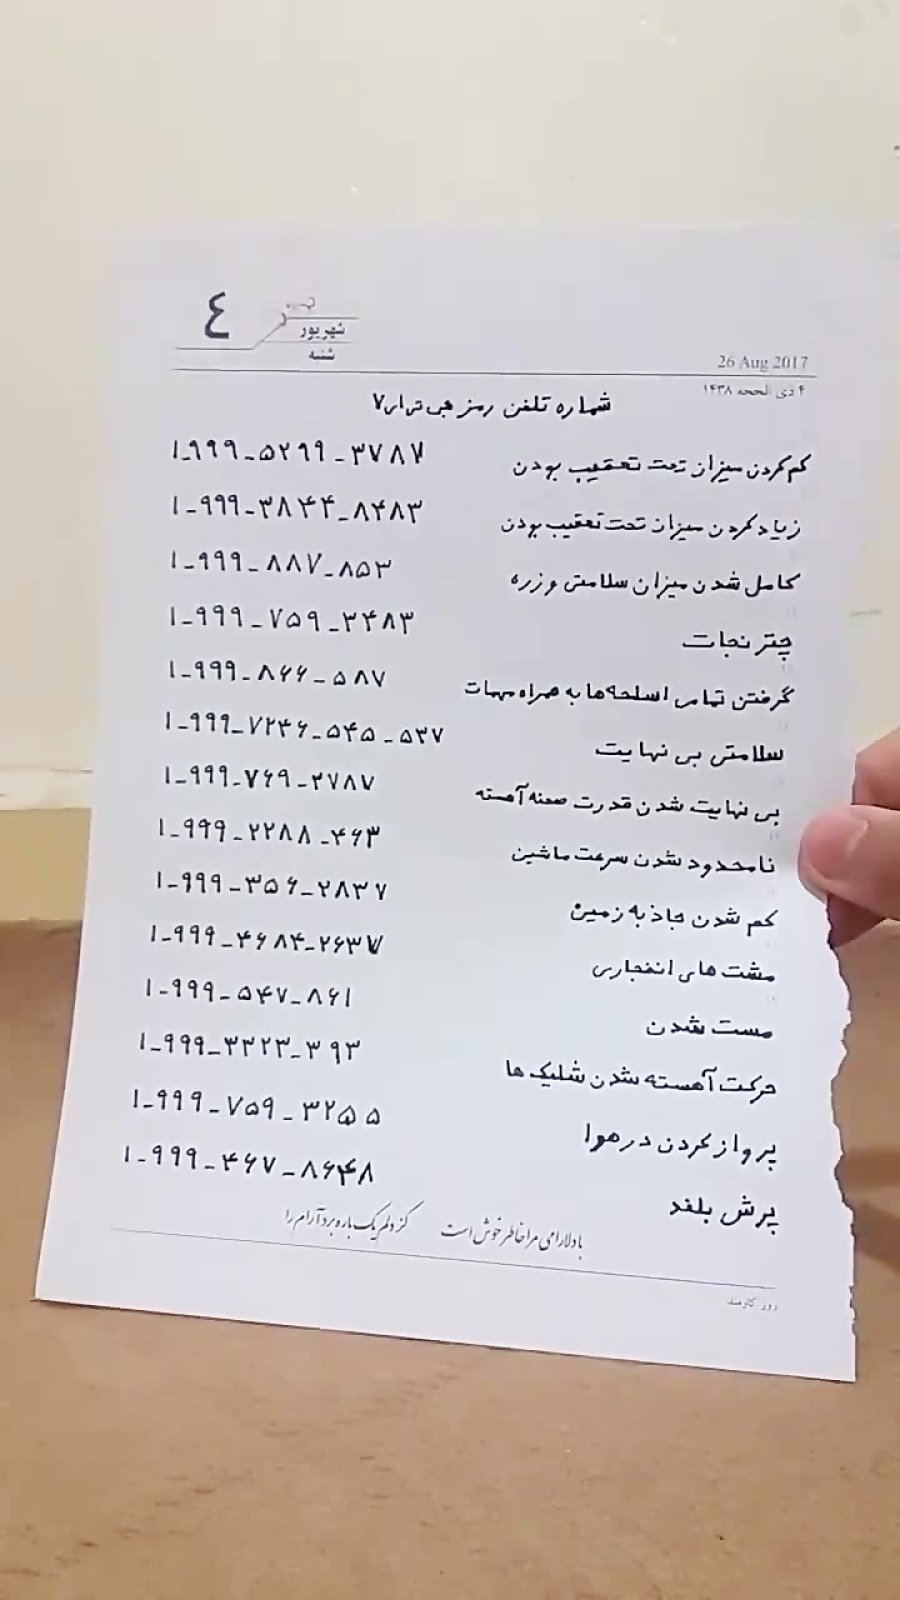 ٤
شهریور
شنبه
26 Aug 2017
۴ ذی الحجه ۱۴۳۸
شماره تلفن رمز جی تی ای ۷
کم کردن میزان تحت تعقیب بودن ۱-۹۹۹-۵۲۹۹-۳۷۸۷
زیاد کردن میزان تحت تعقیب بودن ۱-۹۹۹-۳۸۴۴-۸۴۸۳
کامل شدن میزان سلامتی و زره ۱-۹۹۹-۸۸۷-۸۵۳
چتر نجات ۱-۹۹۹-۷۵۹-۳۴۸۳
گرفتن تمامی اسلحه‌ها به همراه مهمات ۱-۹۹۹-۸۶۶-۵۸۷
سلامتی بی نهایت ۱-۹۹۹-۷۲۴۶-۵۴۵-۵۳۷
بی نهایت شدن قدرت صحنه آهسته ۱-۹۹۹-۷۶۹-۳۷۸۷
نامحدود شدن سرعت ماشین ۱-۹۹۹-۲۲۸۸-۴۶۳
کم شدن جاذبه زمین ۱-۹۹۹-۳۵۶-۲۸۳۷
مشت های انفجاری ۱-۹۹۹-۴۶۸۴-۲۶۳۷
مست شدن ۱-۹۹۹-۵۴۷-۸۶۱
حرکت آهسته شدن شلیک ها ۱-۹۹۹-۳۳۲۳-۳۹۳
پرواز کردن در هوا ۱-۹۹۹-۷۵۹-۳۲۵۵
پرش بلند ۱-۹۹۹-۴۶۷-۸۶۴۸
با دلارامی مرا خاطر خوش است کز دلم یک باره برد آرام را
روز کارمند